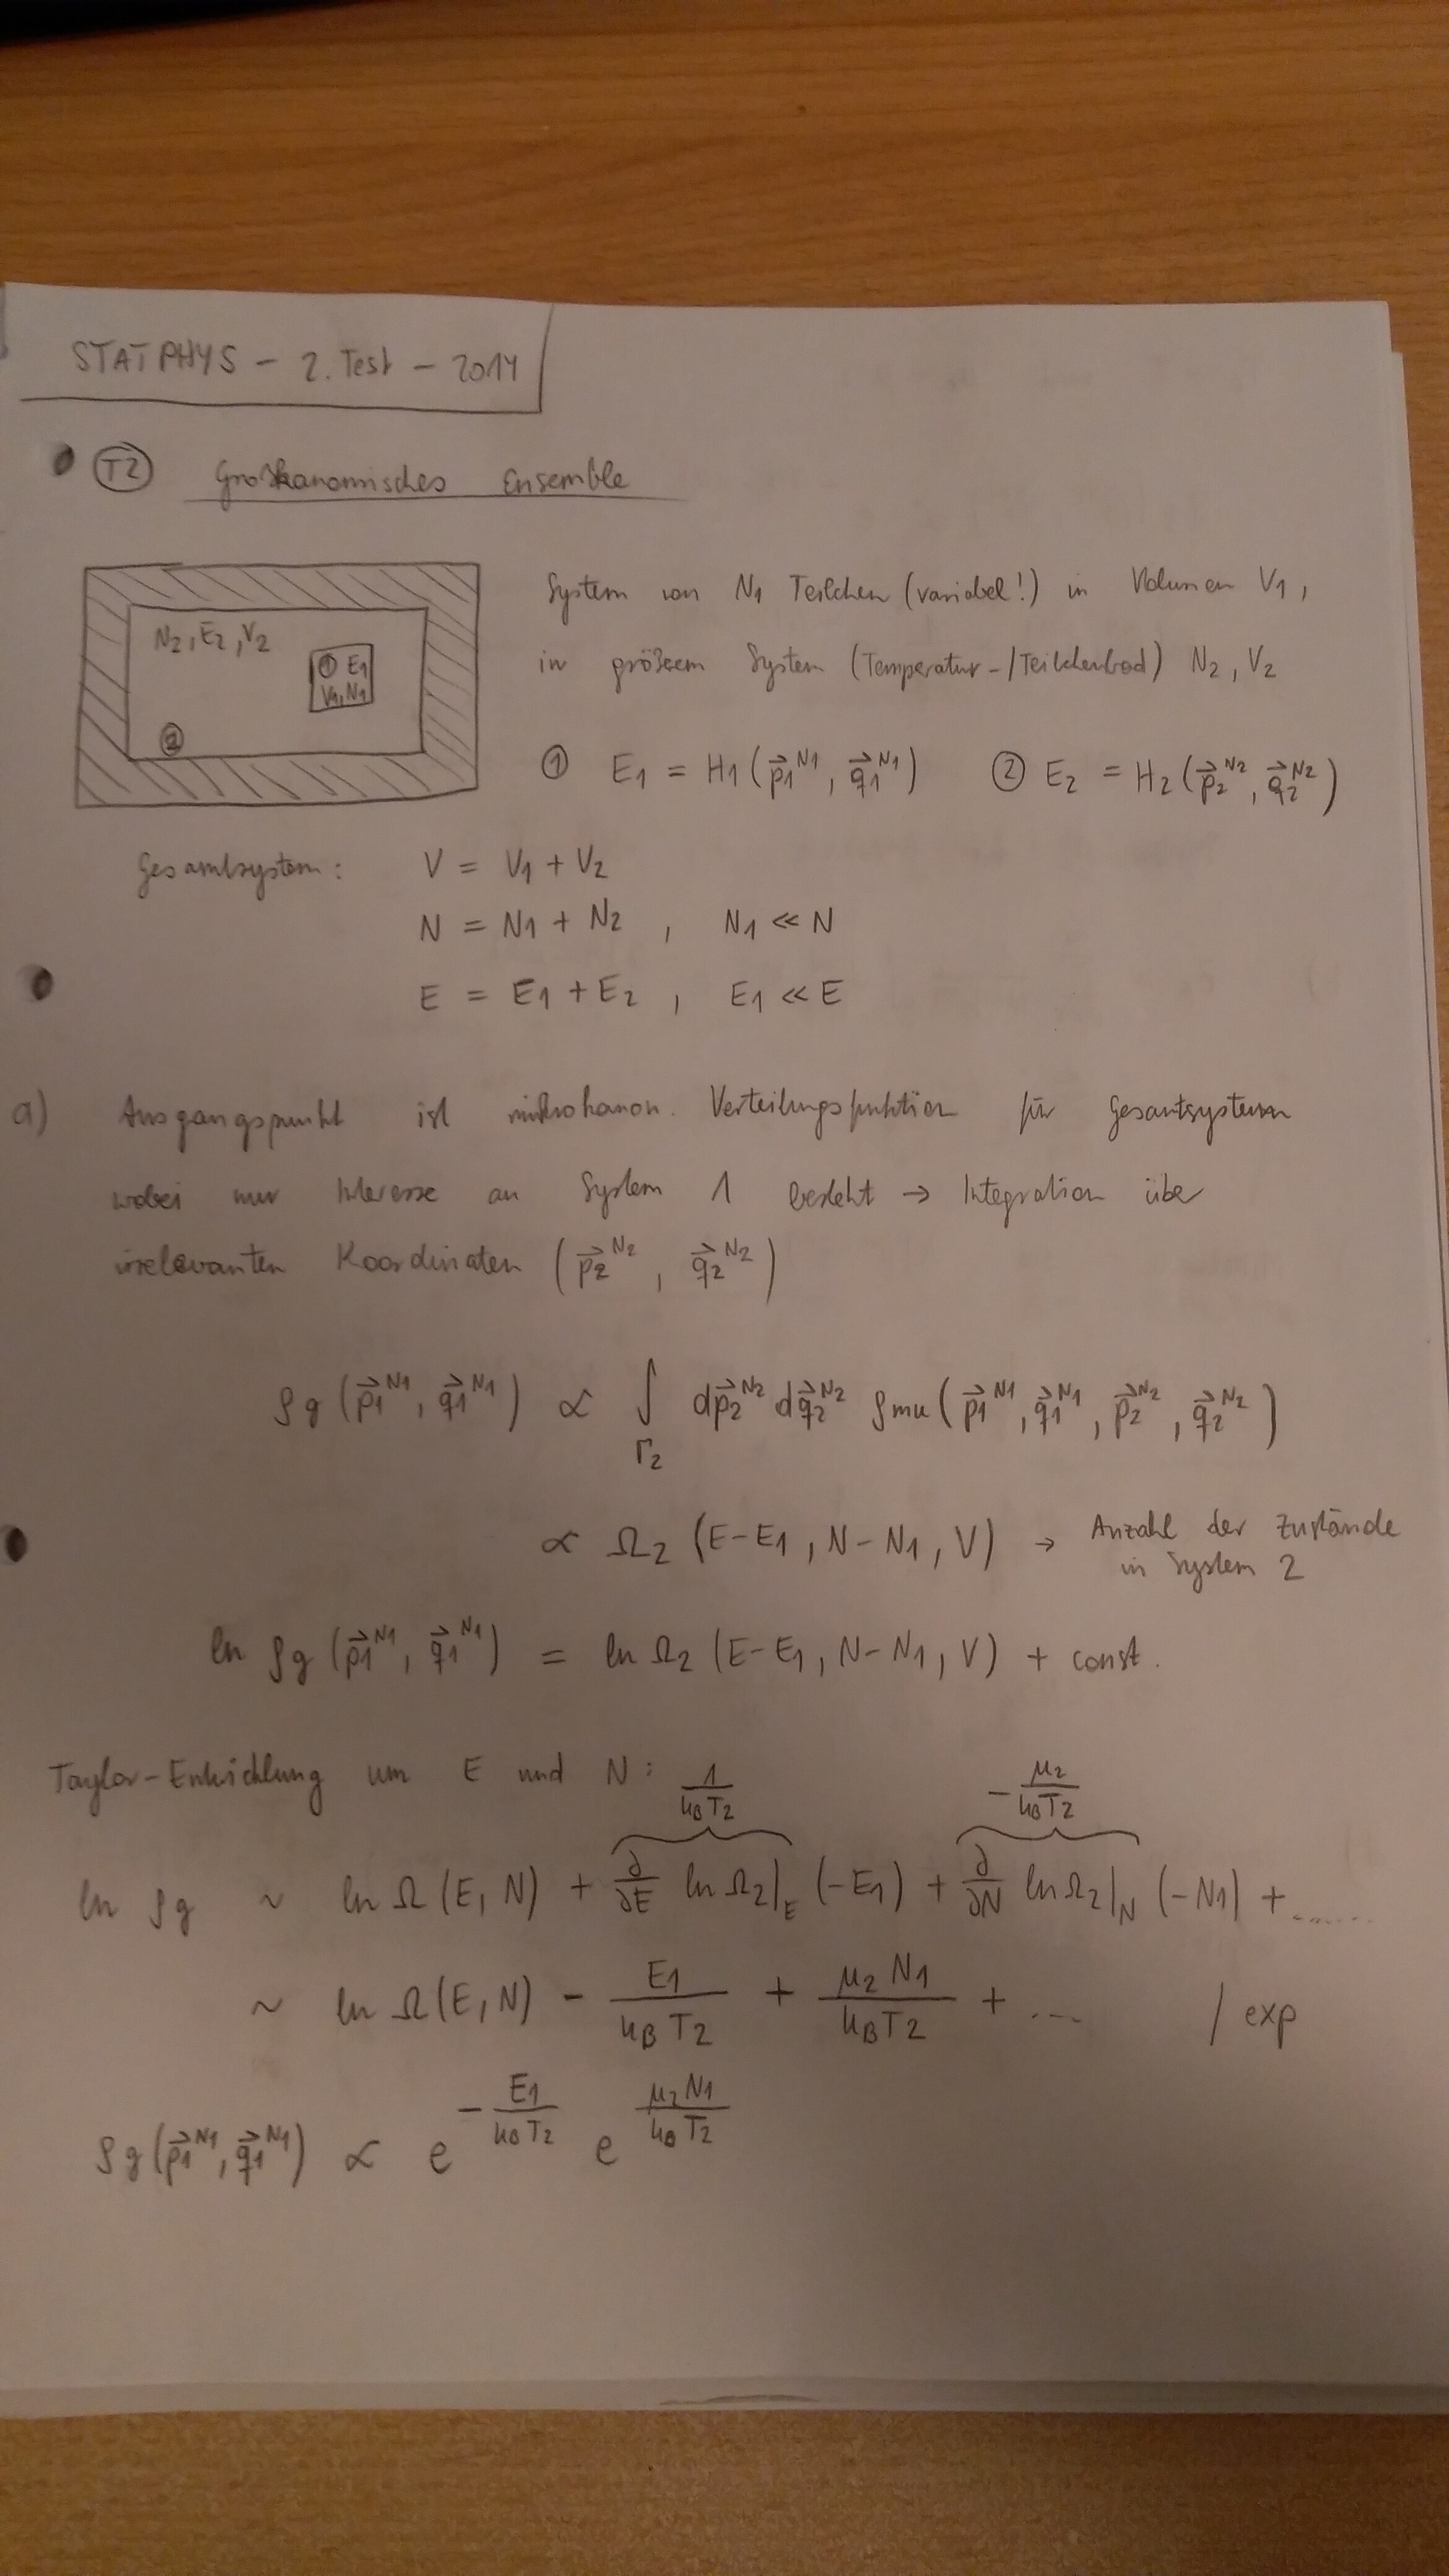 STATPHYS - 2. Test - 2014
T2 Großkanonisches Ensemble
N2, E2, V2
① E1
V1, N1
②
System von N1 Teilchen (variabel!) in Volumen V1,
in größerem System (Temperatur-/Teilchenbad) N2, V2
① E1 = H1 (p⃗1^N1, q⃗1^N1) ② E2 = H2 (p⃗2^N2, q⃗2^N2)
Gesamtsystem: V = V1 + V2
N = N1 + N2 , N1 << N
E = E1 + E2 , E1 << E
a) Ausgangspunkt ist mikrokanon. Verteilungsfunktion für Gesamtsystem
wobei nur Interesse an System 1 besteht → Integration über
irrelevanten Koordinaten (p⃗2^N2, q⃗2^N2)
ρg (p⃗1^N1, q⃗1^N1) ∝ ∫_Γ2 dp⃗2^N2 dq⃗2^N2 ρmk (p⃗1^N1, q⃗1^N1, p⃗2^N2, q⃗2^N2)
∝ Ω2 (E-E1, N-N1, V) → Anzahl der Zustände
in System 2
ln ρg (p⃗1^N1, q⃗1^N1) = ln Ω2 (E-E1, N-N1, V) + const.
Taylor-Entwicklung um E und N:
1/(kBT2) - μ2/(kBT2)
ln ρg ~ ln Ω (E, N) + ∂/∂E ln Ω2|E (-E1) + ∂/∂N ln Ω2|N (-N1) + ......
~ ln Ω (E, N) - E1/(kB T2) + μ2 N1/(kB T2) + ... / exp
ρg (p⃗1^N1, q⃗1^N1) ∝ e^(-E1/(kBT2)) e^(μ2 N1/(kBT2))